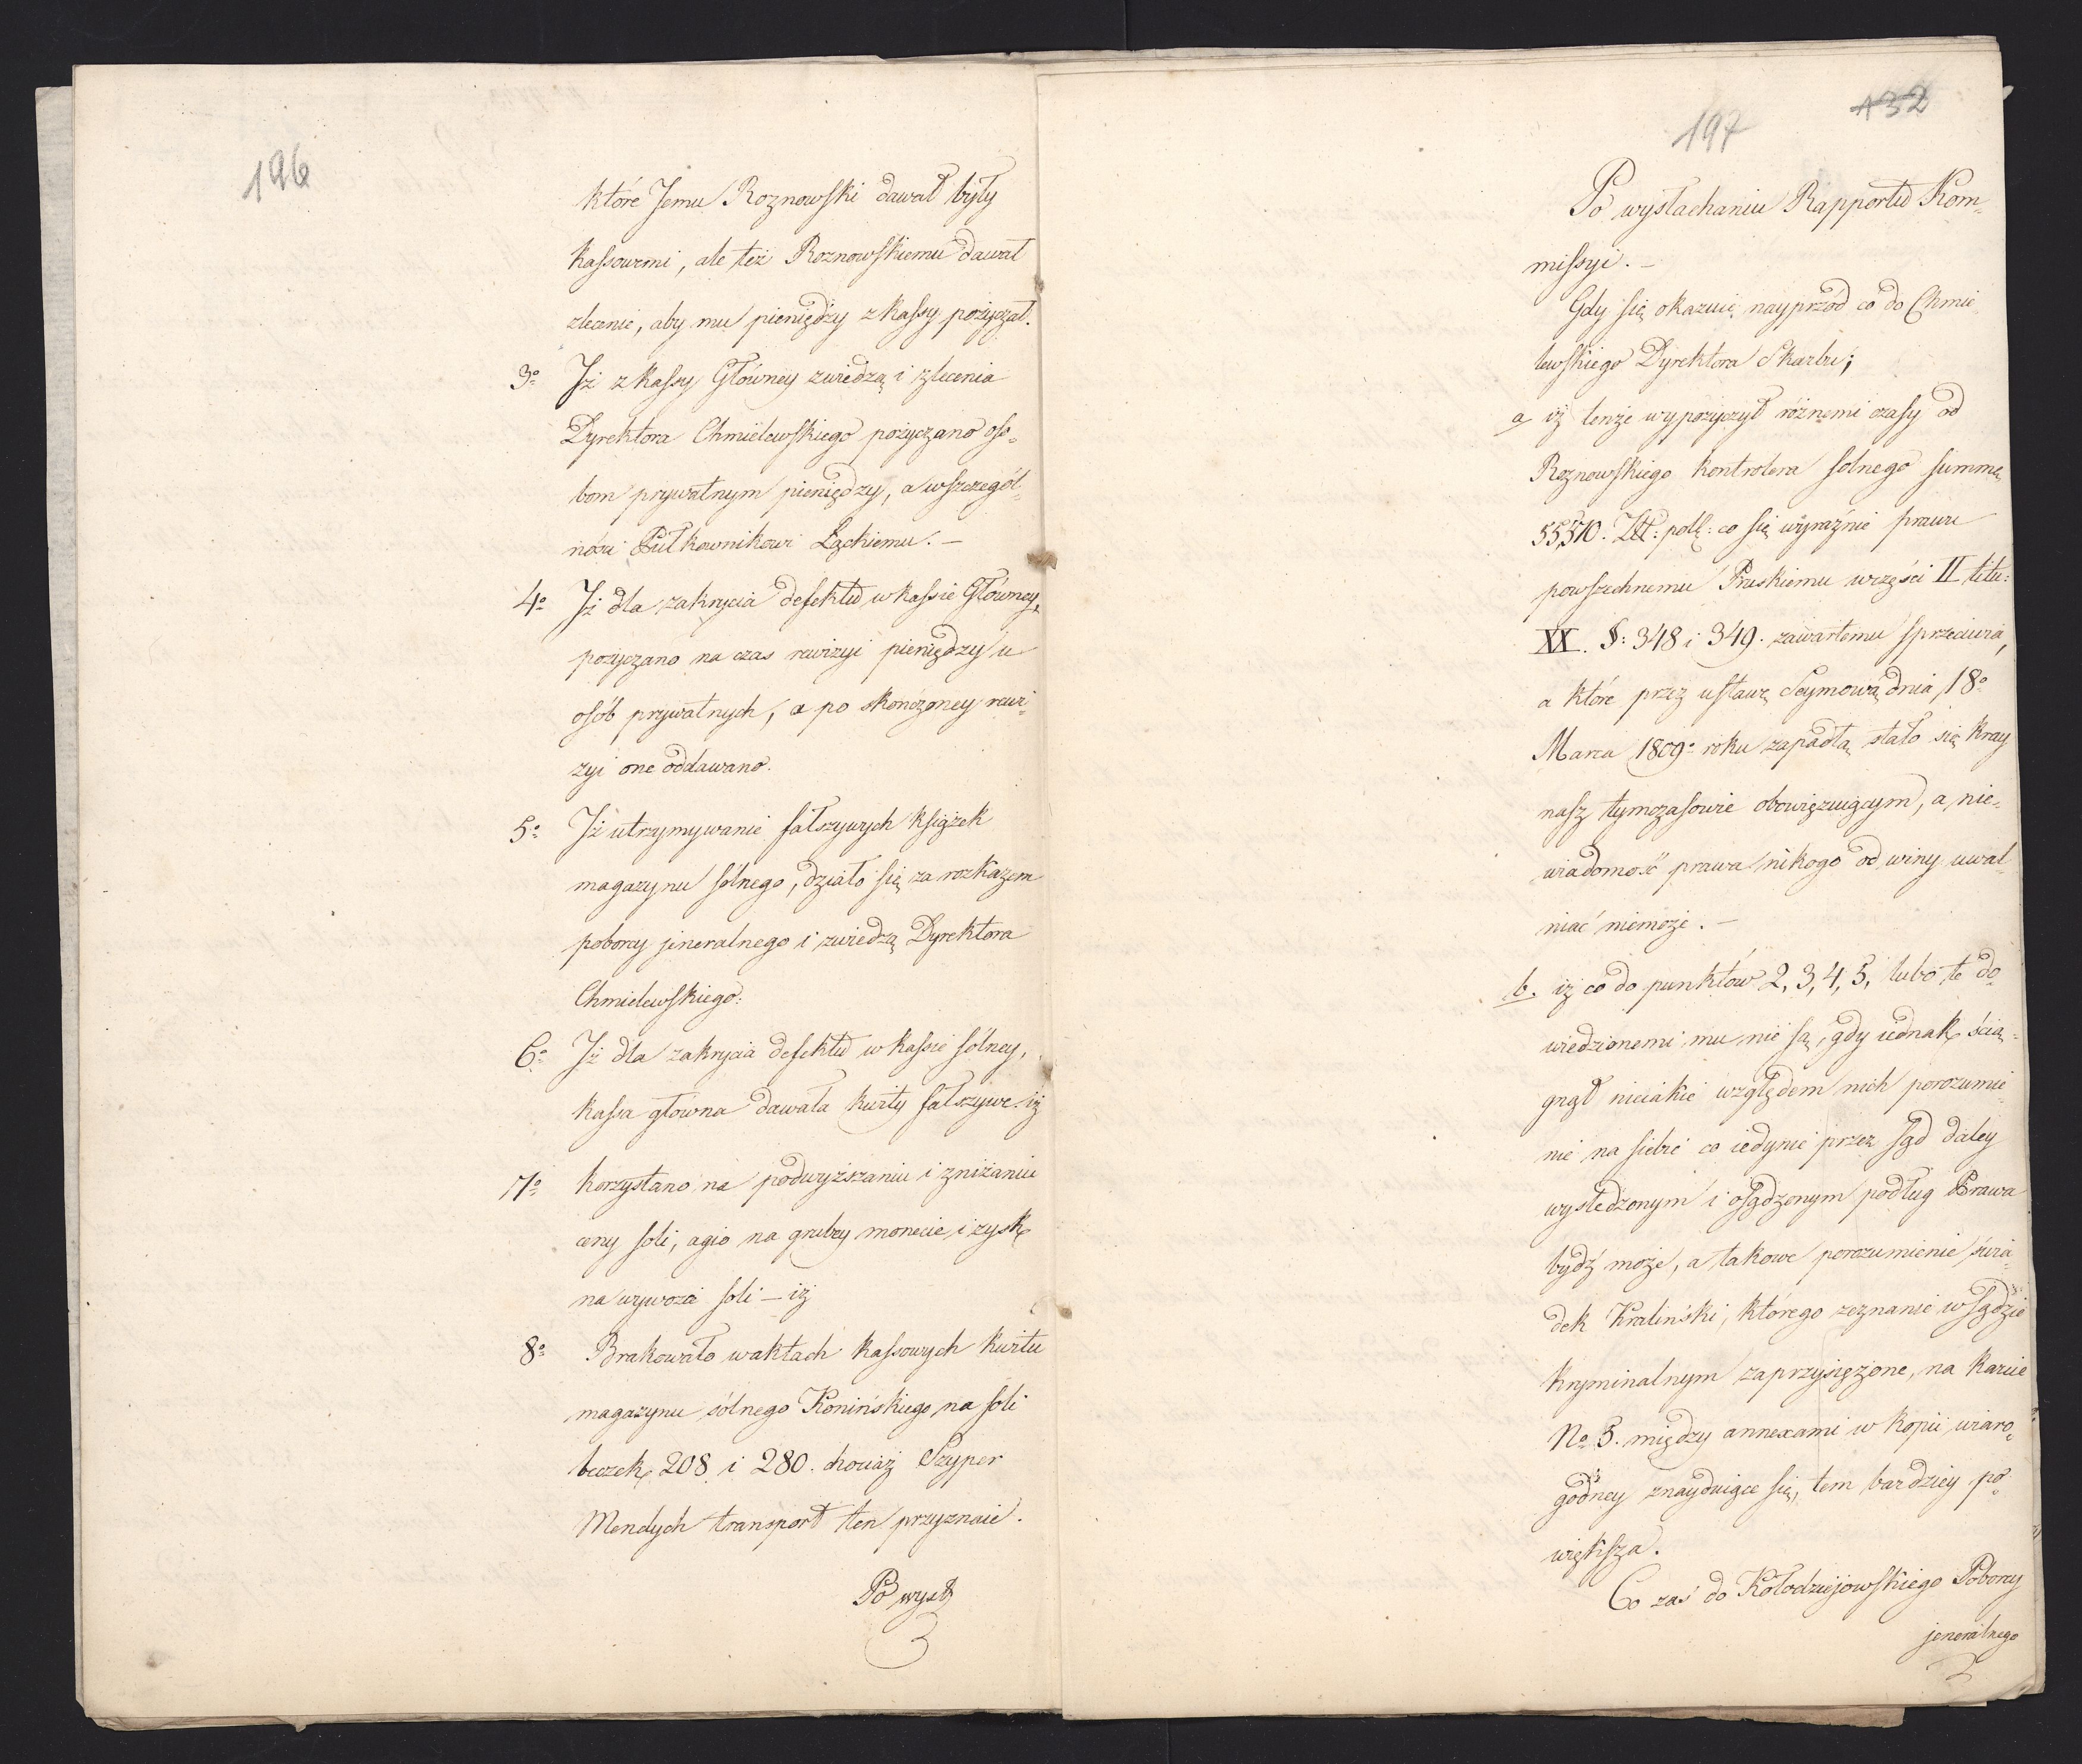 196
które Jemu Roznowski dawał były
kassowemi, ale też Roznowskiemu dawał
zlecenie, aby mu pieniędzy z kassy pożyczał.
3º Iż z kassy Główney zwiedzą i zlecenia
Dyrektora Chmielewskiego pożyczano oso-
bom prywatnym pieniędzy, a wszczegól-
ności Pułkownikowi Łąckiemu. —
4º Iż dla zakrycia defektu w kassie Główney,
pożyczano na czas rewizyi pieniędzy u
osób prywatnych, a po skończoney rewi-
zyi one oddawano.
5º Iż utrzymywanie fałszywych książek
magazynu solnego, działo się za rozkazem
poborcy jeneralnego i zwiedzą Dyrektora
Chmielewskiego.
6º Iż dla zakrycia defektu w kassie sólney,
kassa główna dawała kwity fałszywe. iż
7º korzystano na podwyższaniu i zniżaniu
ceny soli, agio na grubey monecie, i zysk
na wywozie soli — iż
8º Brakowało waktach kassowych kwitu
magazynu sólnego Konińskiego na soli
beczek 208 i 280. chociaż Szyper
Mendych transport ten przyznaie.
Po wysł
197
132
Po wysłachaniu Rapportu Kom-
missyi. —
Gdy się okazuie nayprzód co do Chmie-
lewskiego Dyrektora Skarbu;
a iż tenże wypożyczył różnemi czasy od
Roznowskiego kontrolera solnego summę
55,510. Złł: pols: co się wyraźnie prawu
powszechnemu Pruskiemu wczęści II titu:
XX. §: 348 i 349. zawartemu sprzeciwia,
a które przez ustawę Seymową dnia 18º
Marca 1809º roku zapadłą stało się kray
nasz tymczasowie obowięzuiącym, a nie-
wiadomość prawa nikogo od winy uwal-
niać niemoże. —
b. iż co do punktów 2, 3, 4, 5, lubo te do-
wiedzionemi mu nie są, gdy iednak ścią-
gnął nieiakie względem nich porozumie-
nie na siebie co iedynie przez sąd daley
wyśledzonym i osądzonym podług Prawa
bydź może, a takowe porozumienie świa-
dek Kraliński, którego zeznanie w Sądzie
kryminalnym zaprzysiężone, na karcie
No 3. między annexami w kopii wiaro-
godney znayduiące się, tem bardziey po-
większa.
Co zaś do Kołodziejowskiego Poborcy
jeneralnego